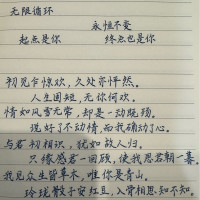 无限循环
永恒不变
起点是你 终点也是你
初见乍惊欢，久处亦怦然。
人生困短，无你何欢。
情如风雪无常，却是一动既殇。
说好了不动情，而我确动了心。
与君初相识，犹如故人归。
只缘感君一回顾，使我思君朝与暮。
我见众生皆草木，唯你是青山。
玲珑骰子安红豆，入骨相思知不知。